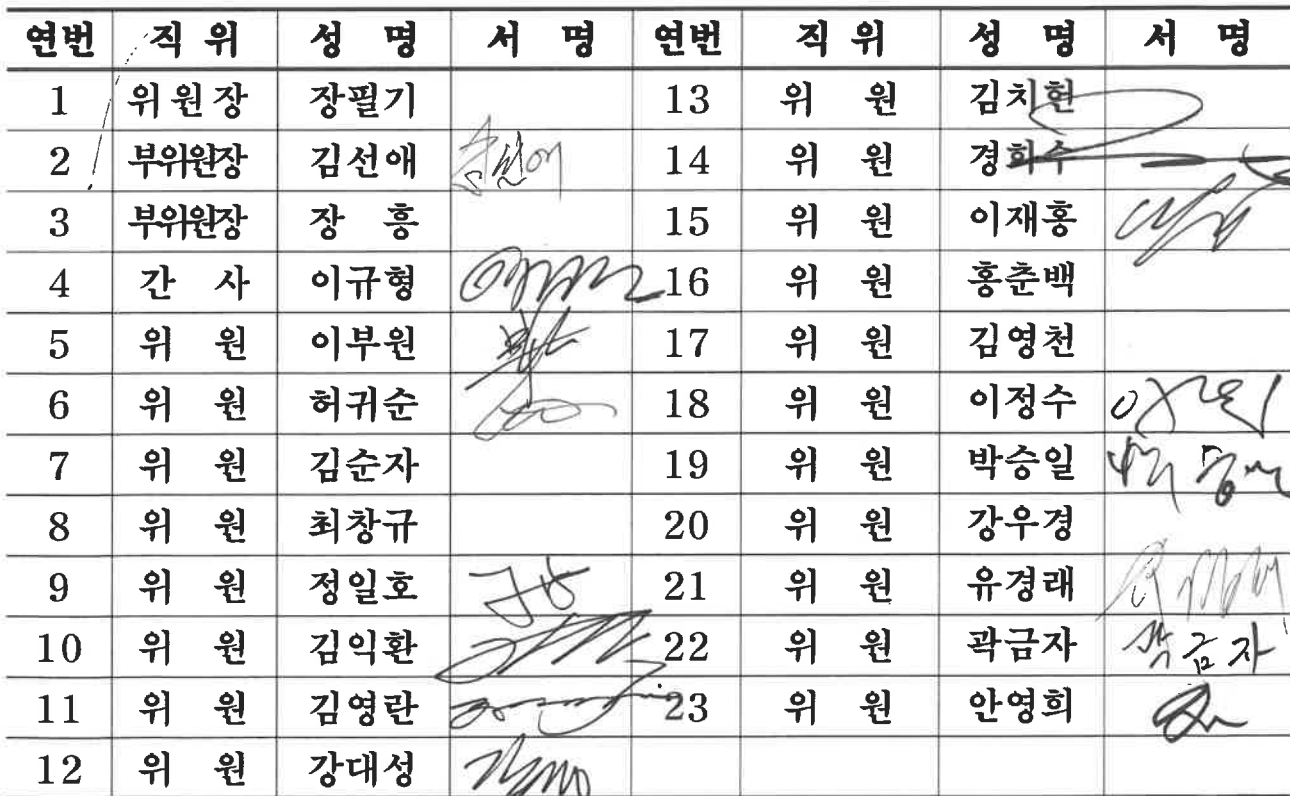 연번 직 위 성 명 서 명 연번 직 위 성 명 서 명
1 위원장 장필기 13 위 원 김치헌
2 부위원장 김선애 김선애 14 위 원 경희수
3 부위원장 장 흥 15 위 원 이재홍
4 간 사 이규형 16 위 원 홍춘백
5 위 원 이부원 17 위 원 김영천
6 위 원 허귀순 18 위 원 이정수
7 위 원 김순자 19 위 원 박승일
8 위 원 최창규 20 위 원 강우경
9 위 원 정일호 21 위 원 유경래
10 위 원 김익환 22 위 원 곽금자 곽금자
11 위 원 김영란 23 위 원 안영희
12 위 원 강대성